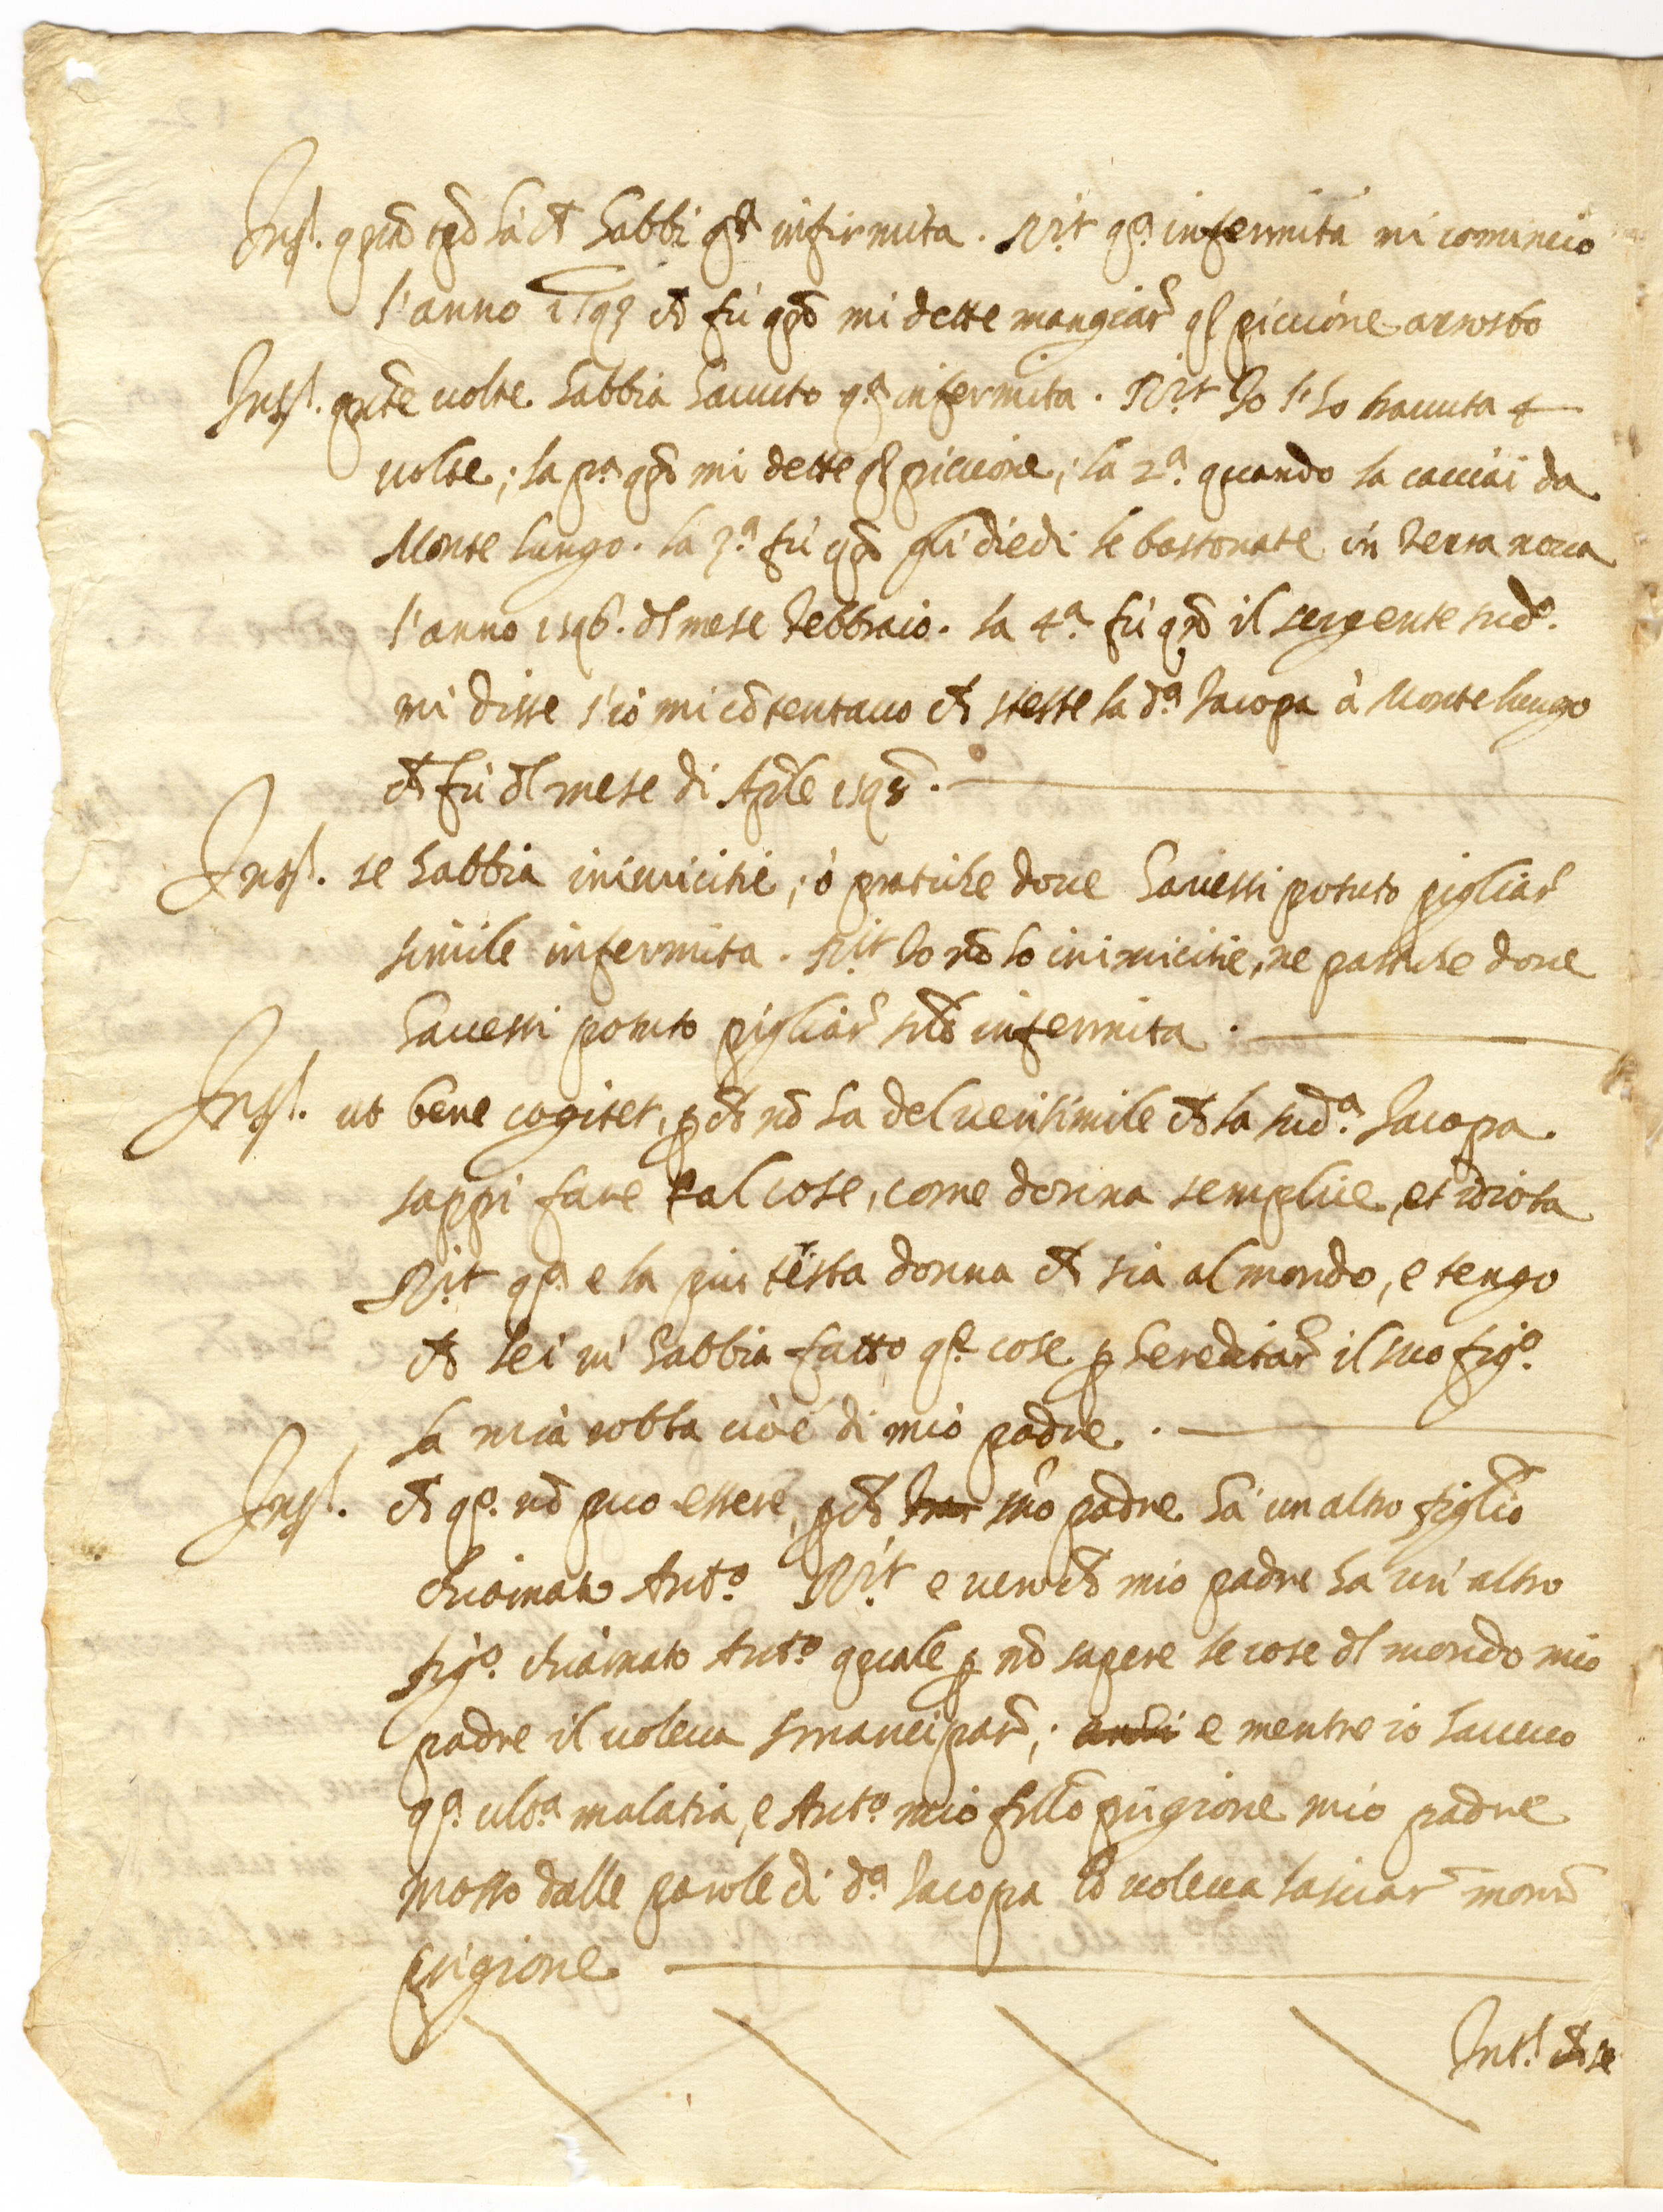 Int. qñto tpõ fà ch habbi qsta infirmità. Rit. qa infermità mi cominciò
l'anno ch fù qñdo mi dette mangiar ql piccione arrosto
Int. qñte uolte habbia hauuto qa infermità. Rit Io l'ho hauuta 4
uolte; la pa qñdo mi dette ql piccione; la 2a. quando la cacciai da
Monte lungo. la 3a fù qñdo gli diedi le bastonate in terra noua
l'anno 1596. dl mese febbraio. la 4a. fù qñdo il sergente sudo.
mi disse s'io mi cõtentauo ch stesse la da Iacopa à Monte lungo
ch fù dl mese di Aple 1598.
Int. se habbia inimicitie, ò pratiche doue hauessi potuto pigliar
simile infermità. Rit Io nõ ho inimicitie, ne pratiche doue
hauessi potuto pigliar infermità.
Int. ut bene cogitet, pch nõ ha del uerisimile ch la suda. Iacopa
sappi fare tal cose, come donna semplice, et idiota
Rit qa. e la piu testa donna ch sia al mondo, e tengo
ch lei mi habbia fatto qe cose p hereditar il suo figo.
la mia robba cioè di mio padre.
Int. ch qo. nõ puo essere, pch suo padre hà un altro figlio
chiamato Anto. Rit e uero ch mio padre ha un'altro
figo. chiamato Anto quale p nõ sapere le cose dl mondo mio
padre il uoleua smancipar; e mentre io haueuo
qa ulta malatia, e Anto mio frllo prigione mio padre
mosso dalle parole di da Iacopa lo uoleua lasciar morir
prigione
Int. ch se